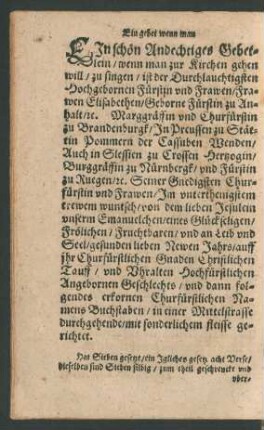 Ein gebet wenn man
EIn schön Andechtiges Gebet-
lein/wenn man zur Kirchen gehen
will/zu singen/ist der Durchlauchtigsten
Hochgebornen Fürstin und Frawen/Fra-
wen Elisabethen/Geborne Fürstin zu An-
halt/ꝛc. Marggräffin und Churfürstin
zu Brandenburgk/In Preussen zu Stät-
tin Pommern der Cassuben Wenden/
Auch in Slesien zu Crossen Hertzogin/
Burggräffin zu Nürnbergk/und Fürstin
zu Ruegen/ꝛc. Seiner Gnedigsten Chur-
fürstin und Frawen/Im unterthenigstem
trewem wuntsch/von dem lieben Jesulein
unserm Emanuelchen/eines Glückseligen/
Frölichen/Fruchtbaren/und an Leib und
Seel/gesunden lieben Newen Jahrs/auff
ihr Churfürstlichen Gnaden Christlichen
Tauff/und Uhralten Hochfürstlichen
Angebornen Geschlechts/und dann fol-
gendes erkornen Churfürstlichen Na-
mens Buchstaben/in einer Mittelstrasse
durchgehende/mit sonderlichem fleisse ge-
richtet.
Hat Sieben gesetz/ein Jgliches gesetz acht Verse/
dieselben sind Sieben silbig/zum theil geschrenckt und
uber-